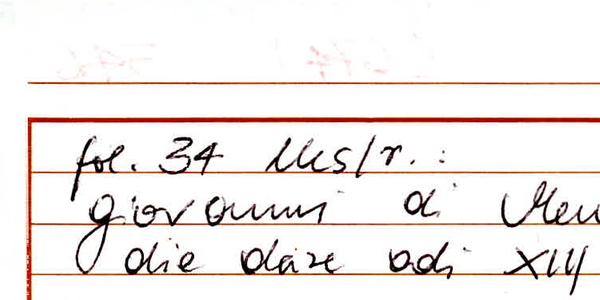 fol. 34 Uks/r. :
giovanni di
die dare adi XIIII